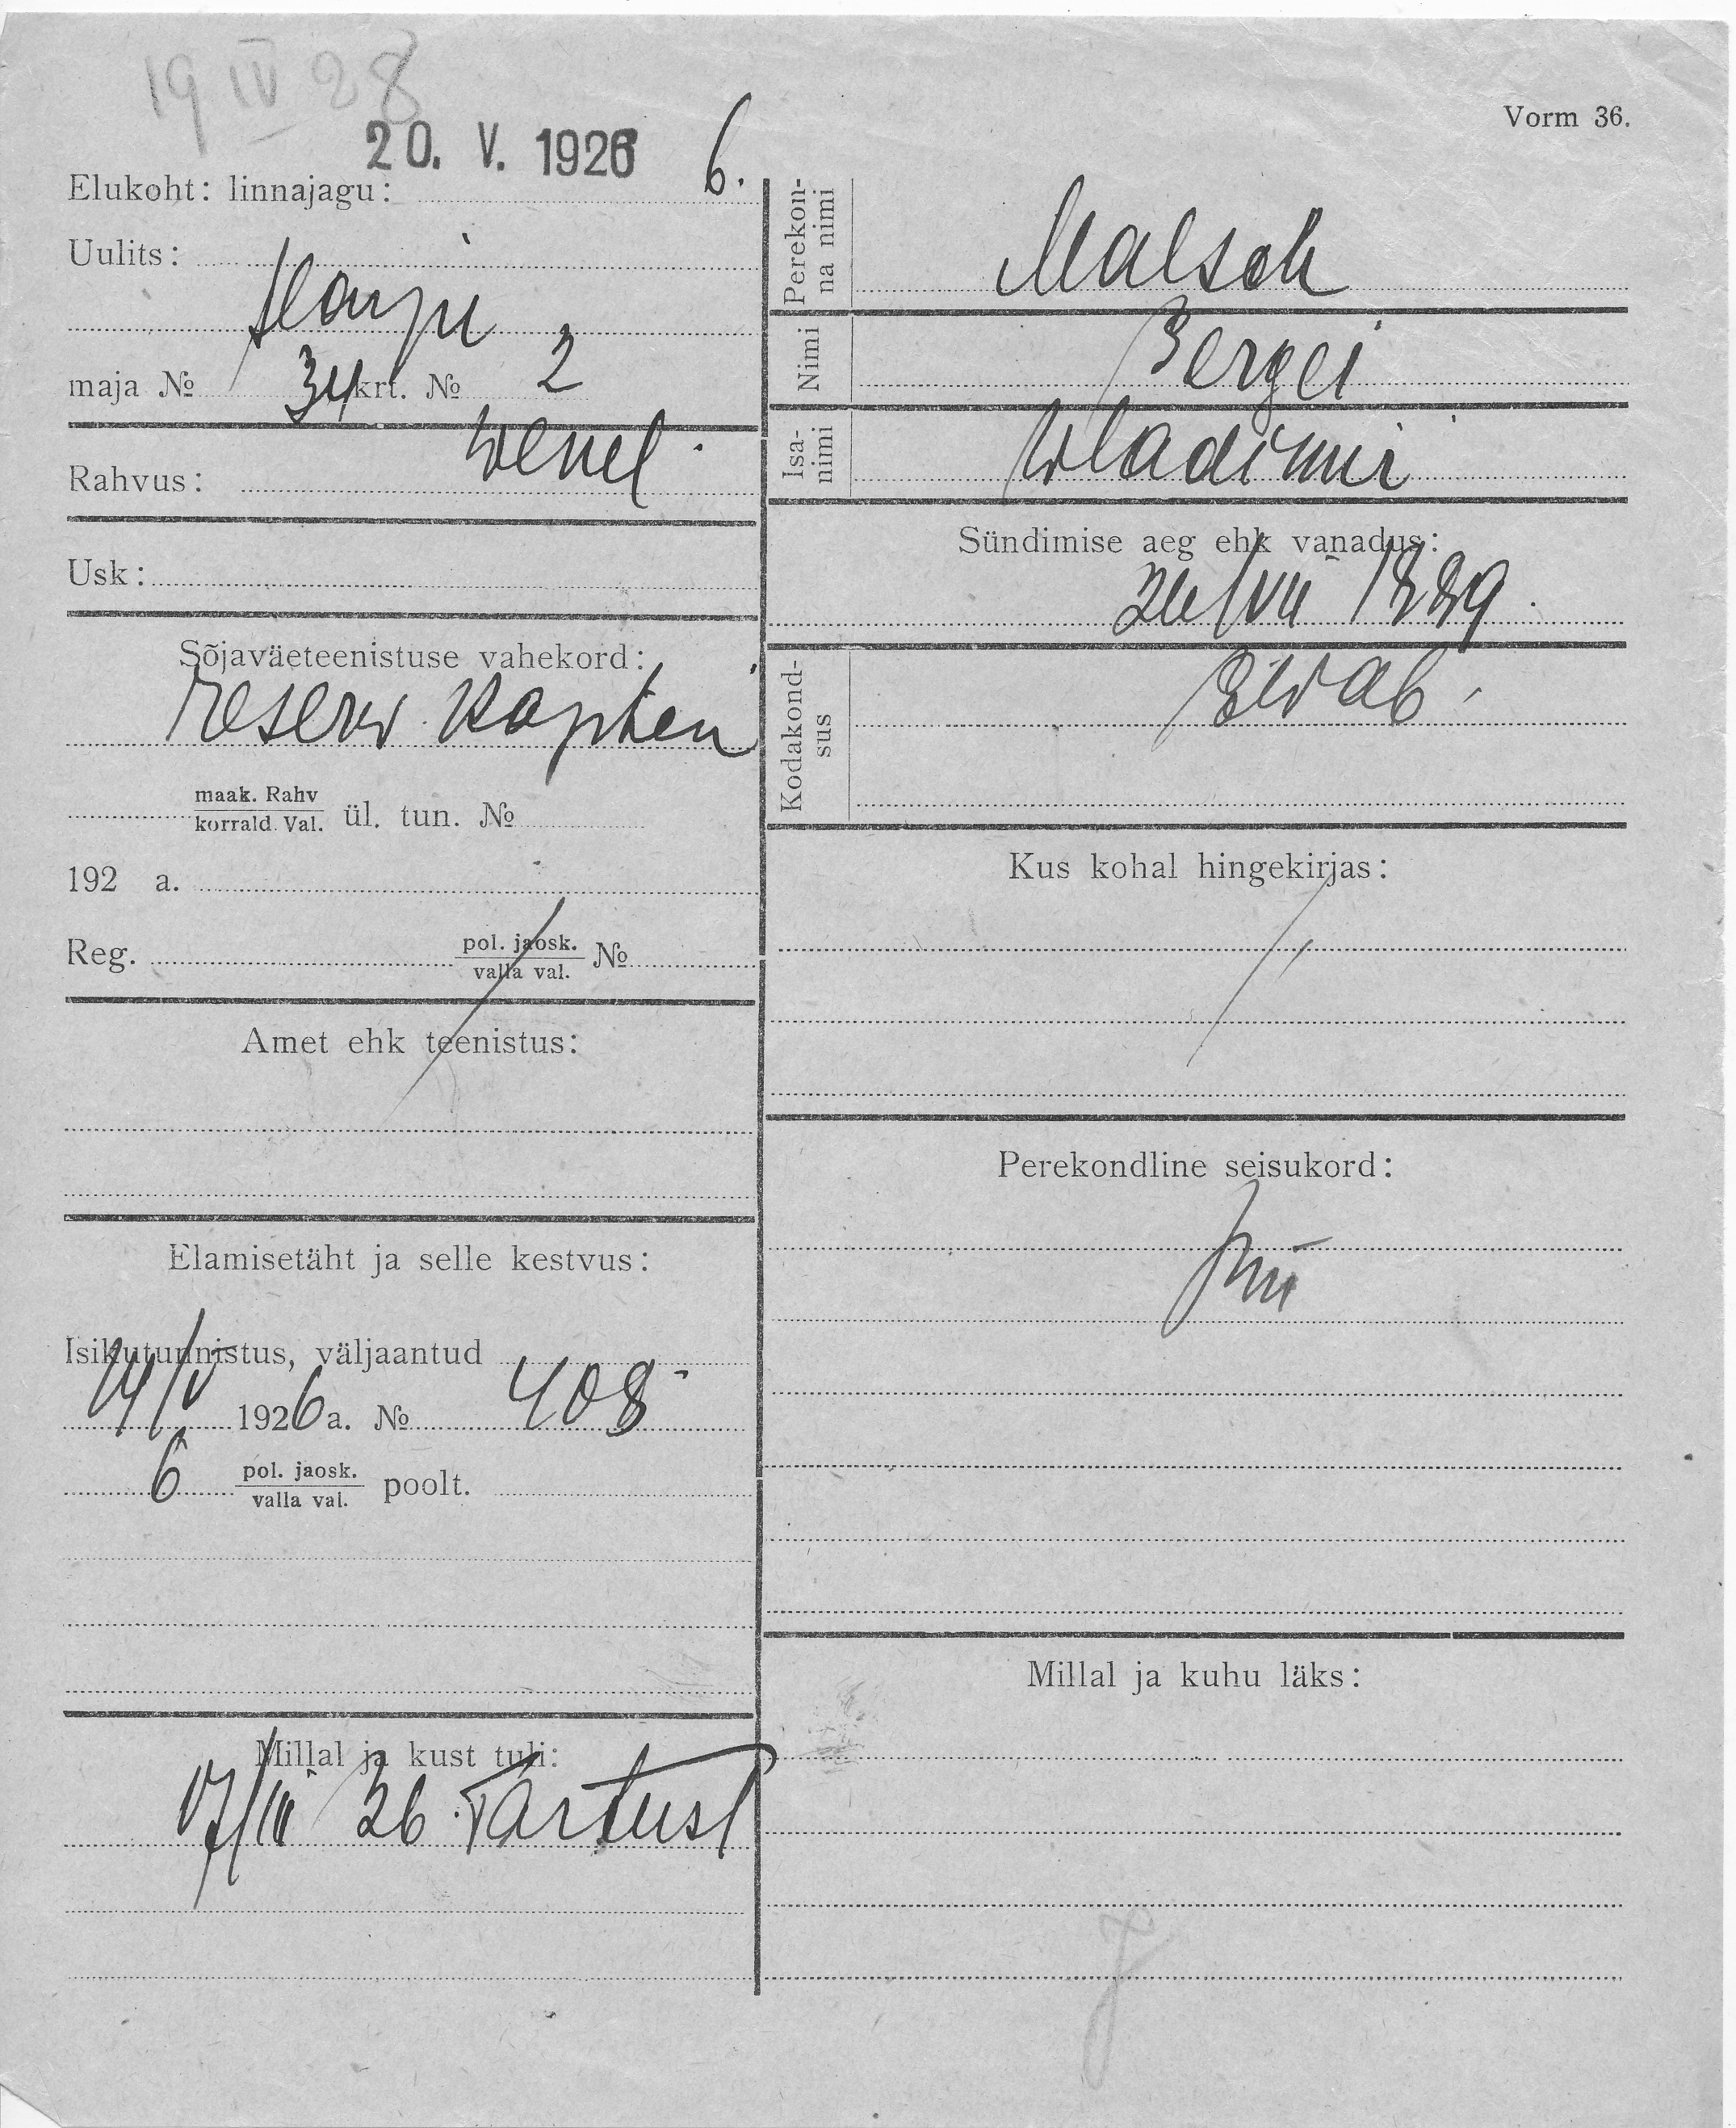 19 IV 28
20. V. 1926
Vorm 36.
Elukoht: linnajagu: 6.
Uulits:
Harju
maja № 34 krt. № 2
Rahvus: wenel.
Usk:
Sõjaväeteenistuse vahekord:
reserv. Kapten
maak. Rahv
korrald. Val. ül. tun. №
192 a.
Reg. pol. jaosk.
valla val. №
Amet ehk teenistus:
Elamisetäht ja selle kestvus:
Isikutunnistus, väljaantud
14/V 1926 a. № 408
6 pol. jaosk.
valla val. poolt.
Millal ja kust tuli:
17/III 26. Tartust
Perekon-
na nimi Malsch
Nimi Sergei
Isa-
nimi Wladimir
Sündimise aeg ehk vanadus:
26/VII 1889.
Kodakond-
sus
Kus kohal hingekirjas:
Perekondline seisukord:
Millal ja kuhu läks: